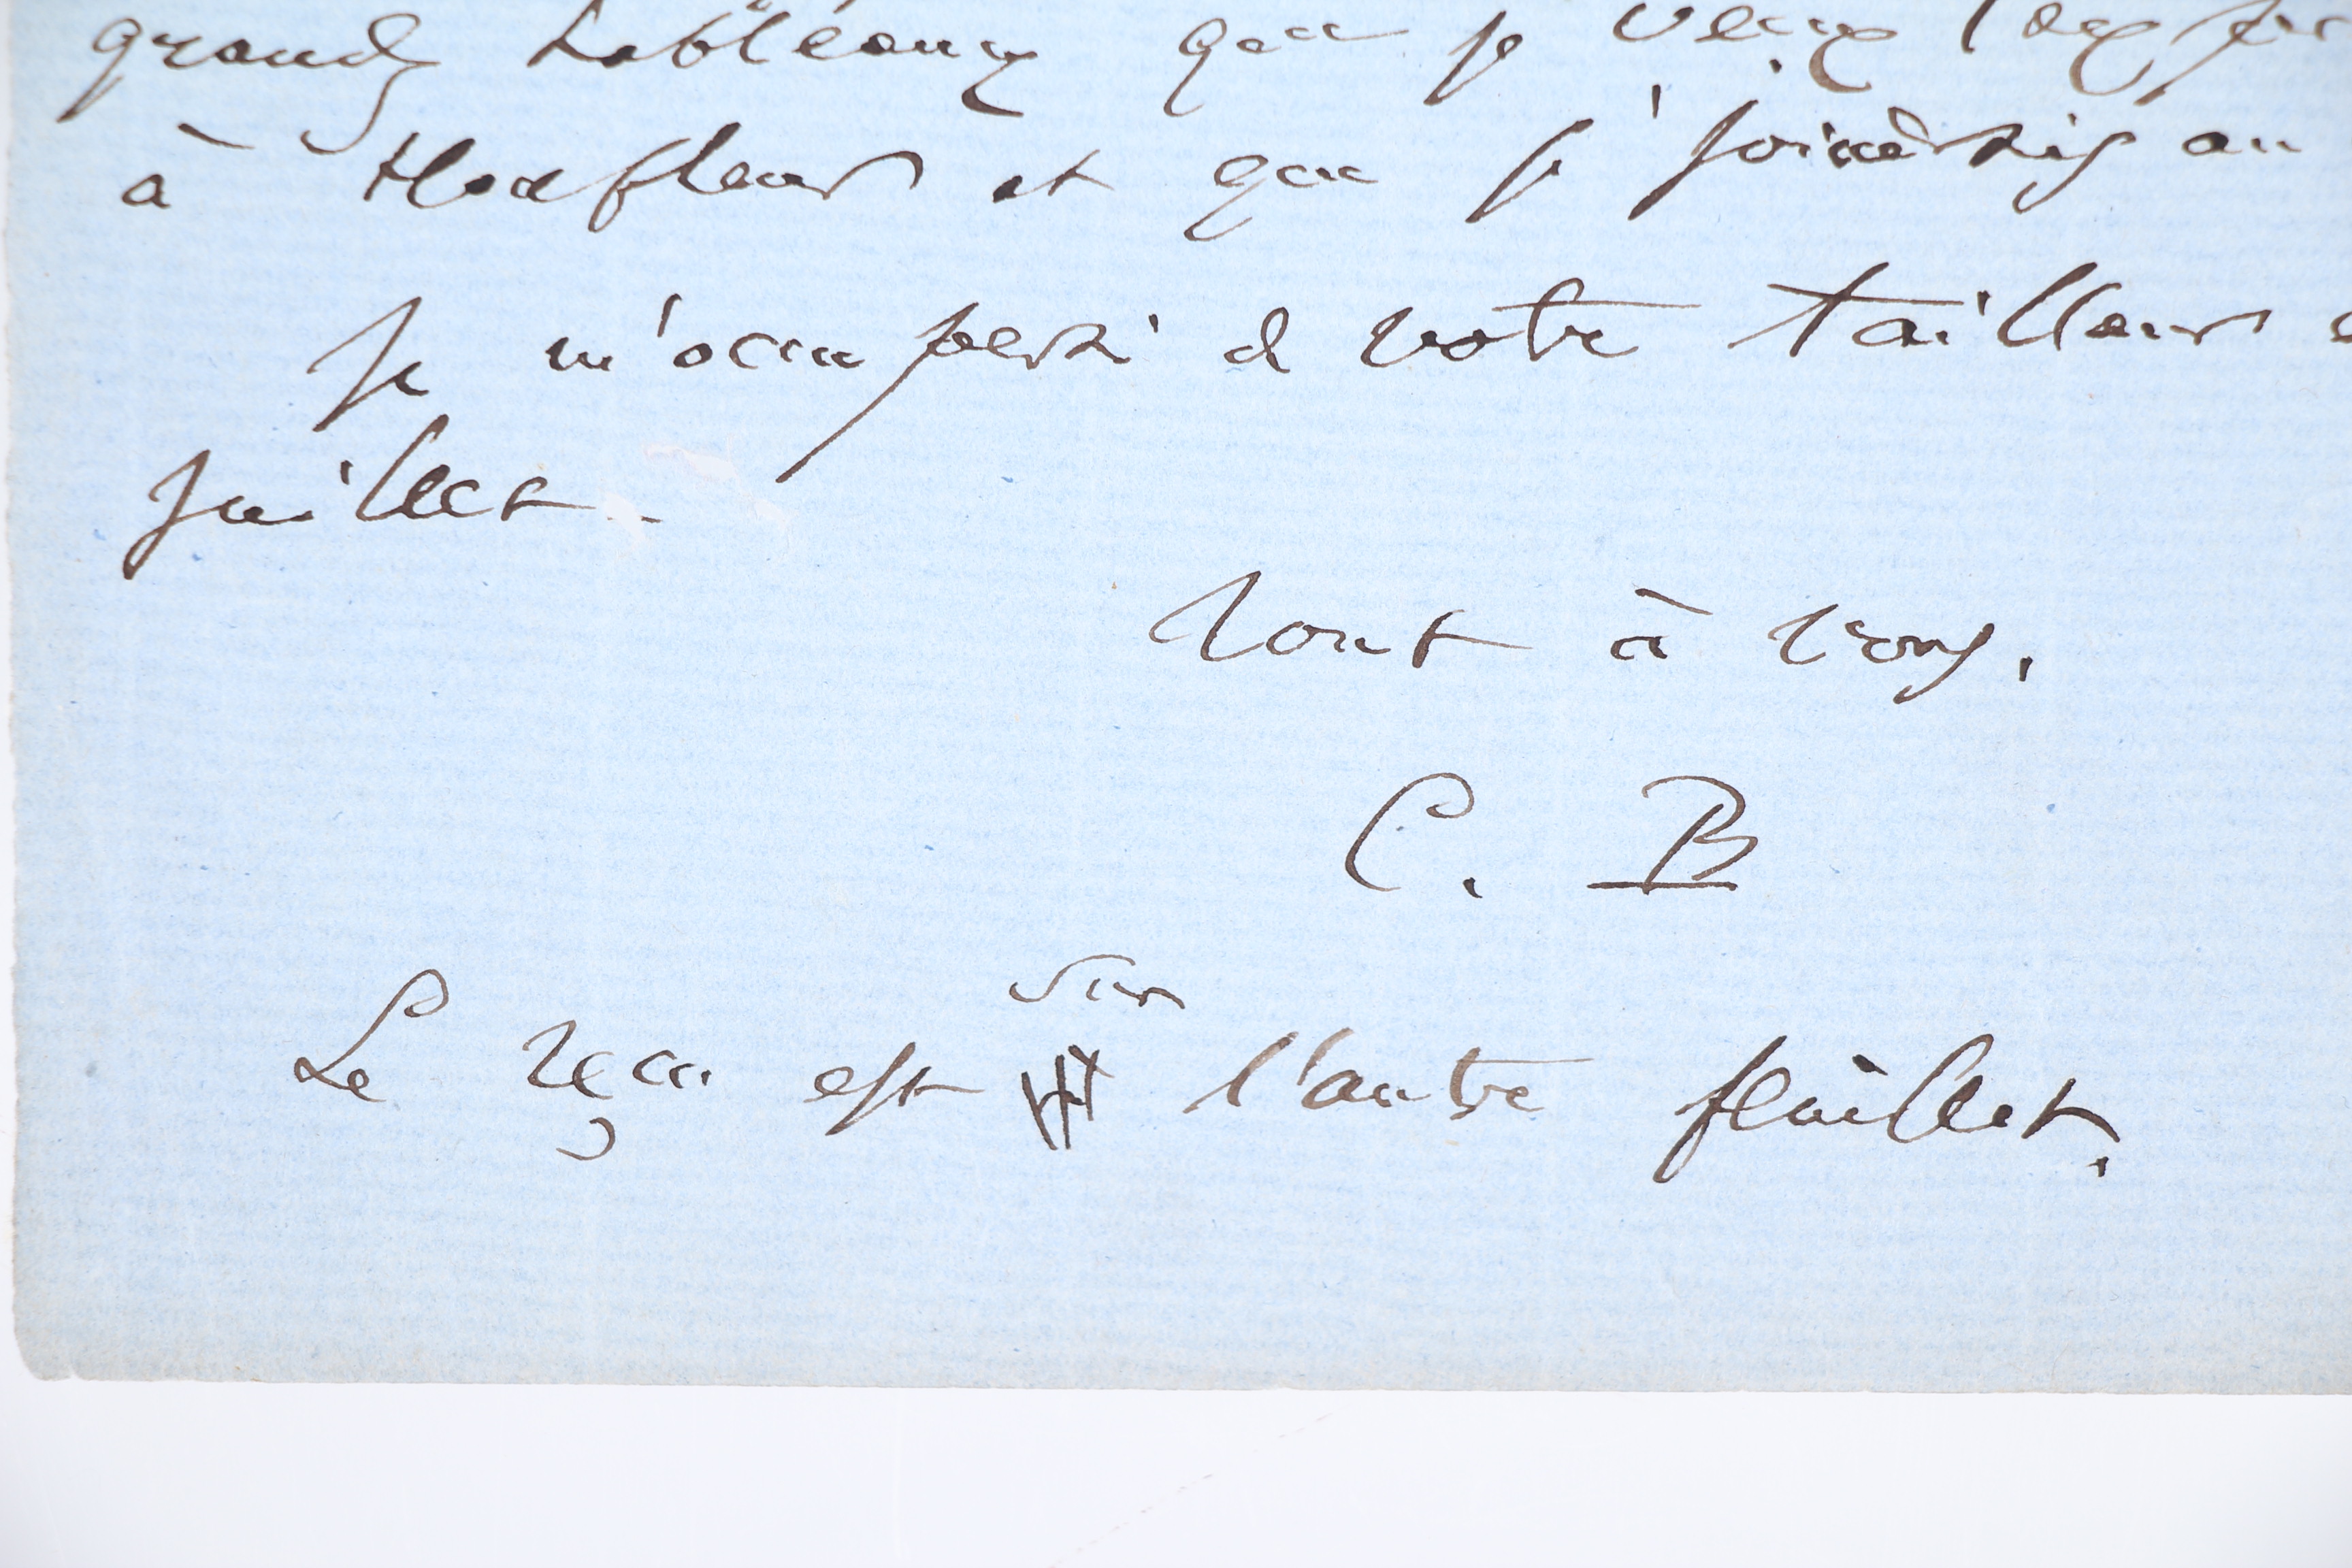 grands tableaux que je veux
à Honfleur et que je joindrais au
Je m'occuperai de votre tailleur
juillet.
Tout à vous.
C. B
sur
Le reçu est l'autre feuillet.